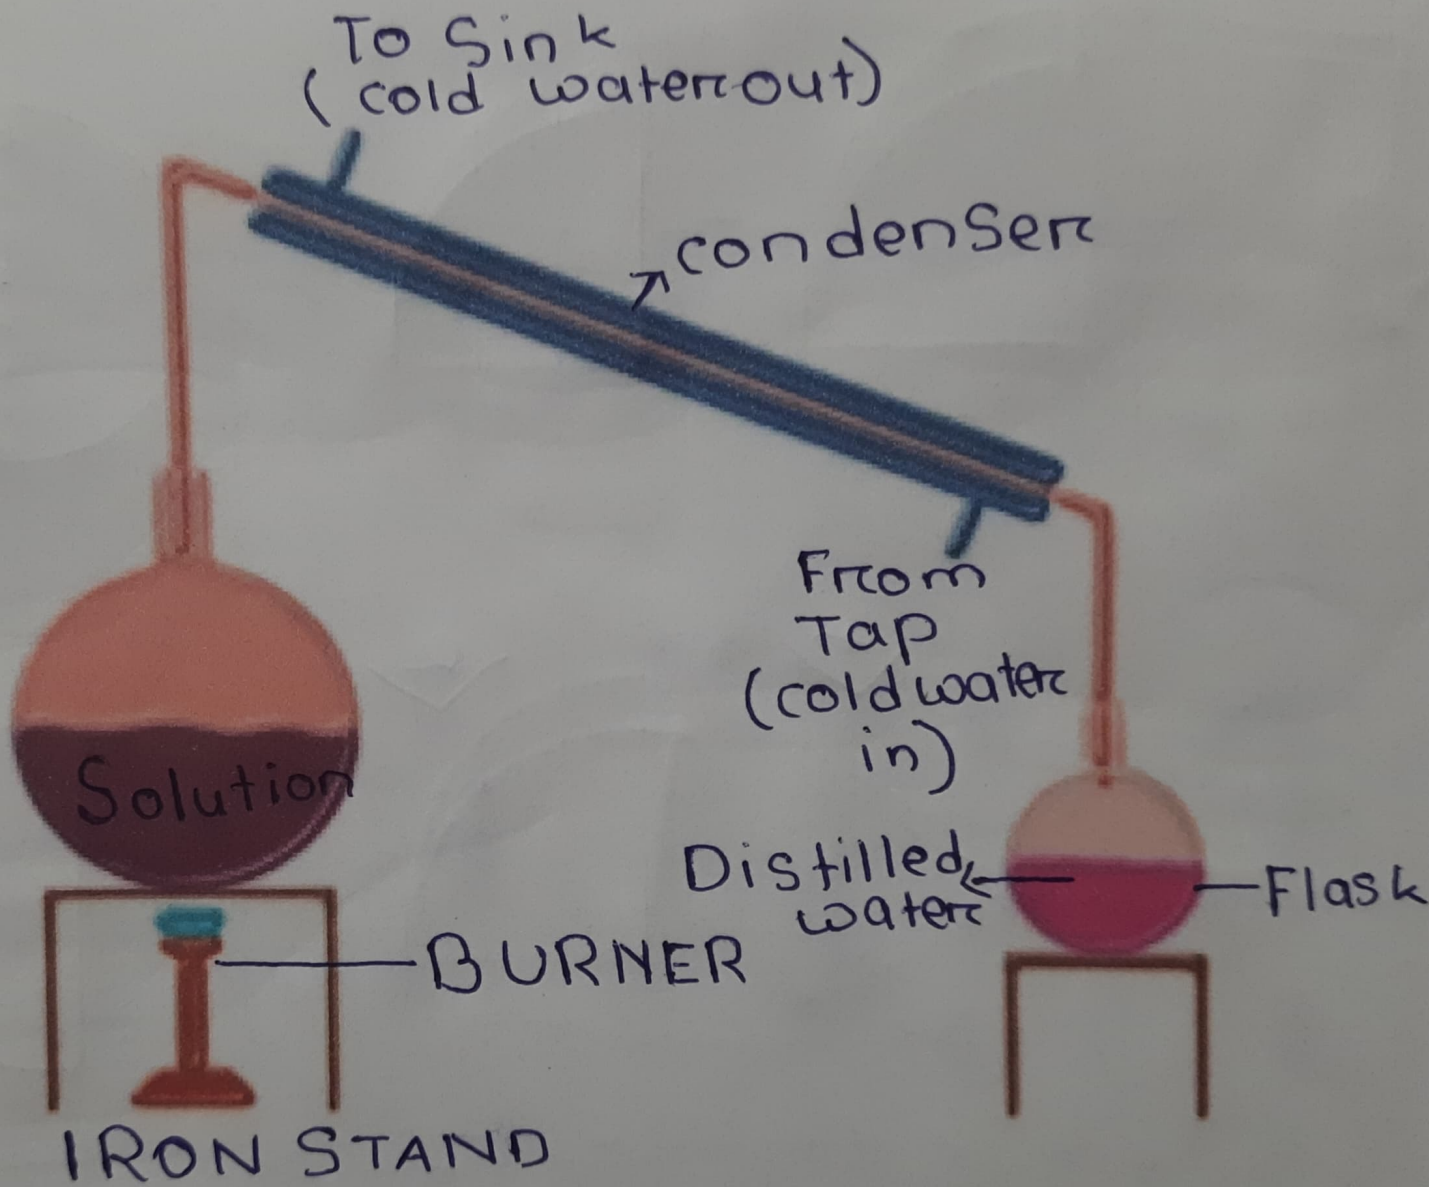 To Sink
(cold water out)
condenser
From
Tap
(cold water
in)
Solution
Distilled
water
Flask
BURNER
IRON STAND